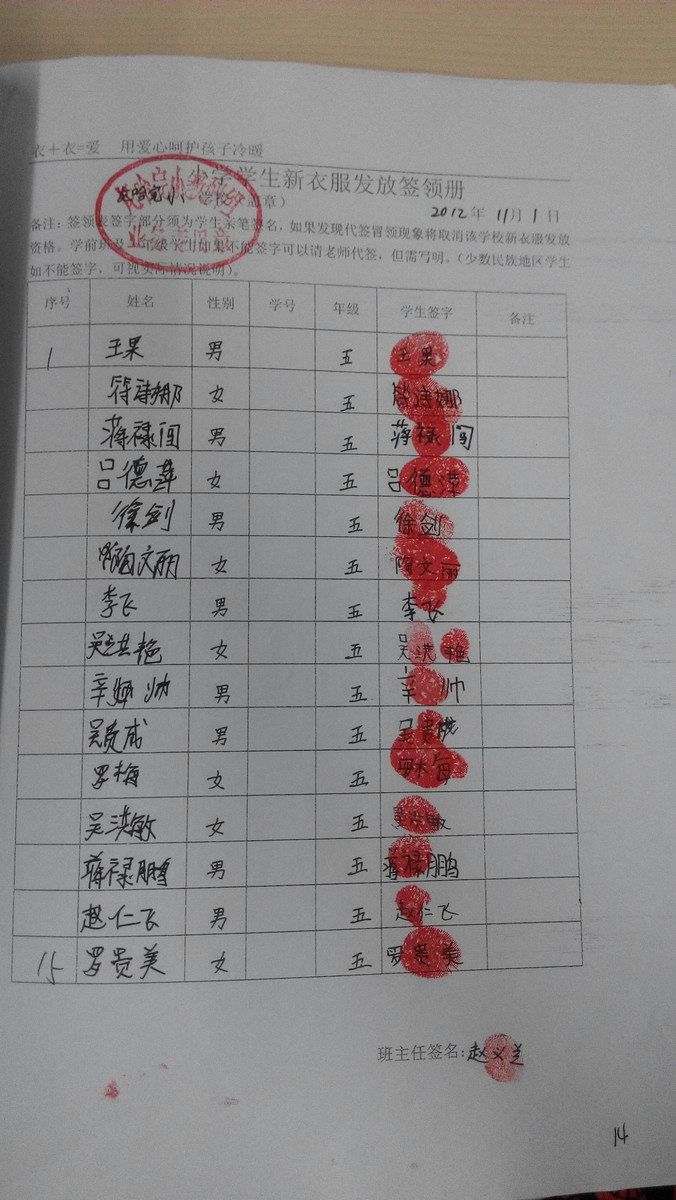 衣+衣=爱 用爱心呵护孩子冷暖
小学学生新衣服发放签领册
2012年 11月 1日
备注：签领表签字部分须为学生亲笔签名，如果发现代签冒领现象将取消该学校新衣服发放
资格。学前班及一年级学生如果不能签字可以请老师代签，但需写明。（少数民族地区学生
如不能签字，可视实际情况说明）。
序号 姓名 性别 学号 年级 学生签字 备注
1 王果 男 五 王果
符诗娜 女 五 符诗娜
蒋禄闯 男 五 蒋禄闯
吕德萍 女 五 吕德萍
徐剑 男 五 徐剑
陶文丽 女 五 陶文丽
李飞 男 五 李飞
吴洪艳 女 五 吴洪艳
辛 帅 男 五 辛 帅
吴贵成 男 五 吴贵成
罗梅 女 五 罗梅
吴洪敏 女 五 吴洪敏
蒋禄鹏 男 五 蒋禄鹏
赵仁飞 男 五 赵仁飞
15 罗贵美 女 五 罗贵美
班主任签名：赵义兰
14